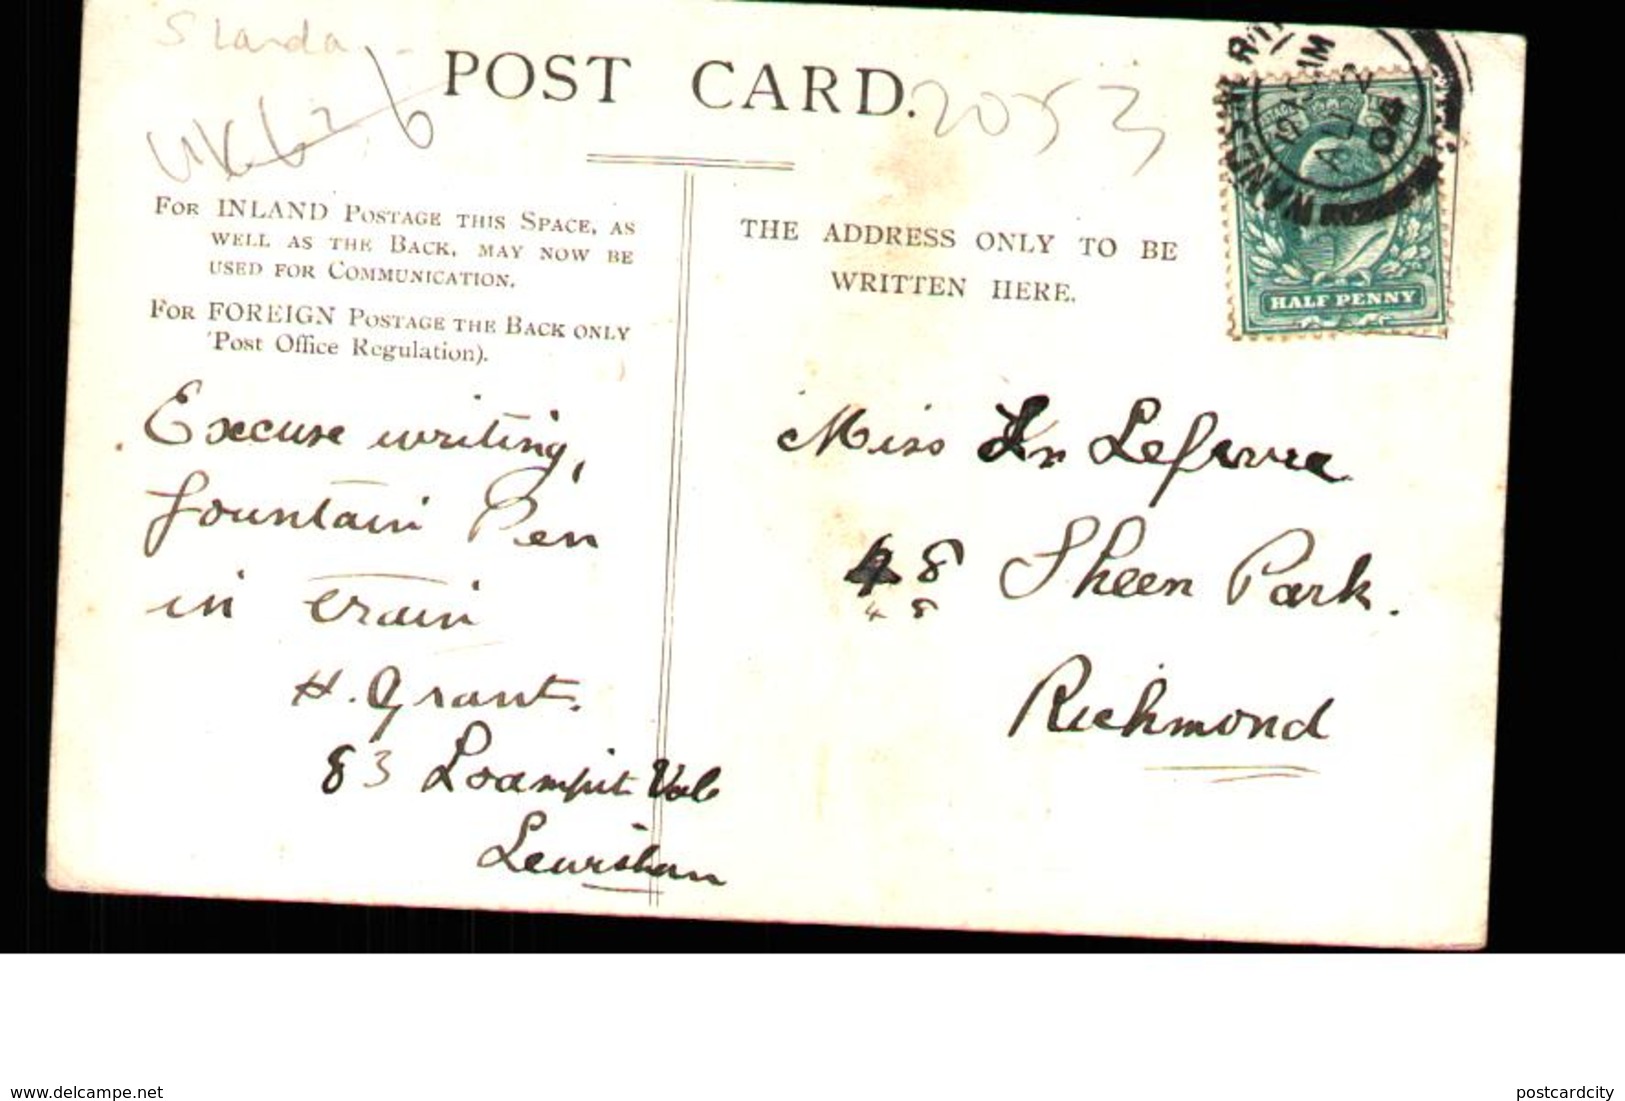 S Landa
POST CARD.
2053
For INLAND Postage this Space, as
well as the Back, may now be
used for Communication.
For FOREIGN Postage the Back only
Post Office Regulation).
THE ADDRESS ONLY TO BE
WRITTEN HERE.
HALF PENNY
Excuse writing,
fountain Pen
in train
H. Grant.
83 Loampit Vale
Lewisham
Miss Lefevre
48 Sheen Park.
4 8
Richmond
www.delcampe.net
postcardcity